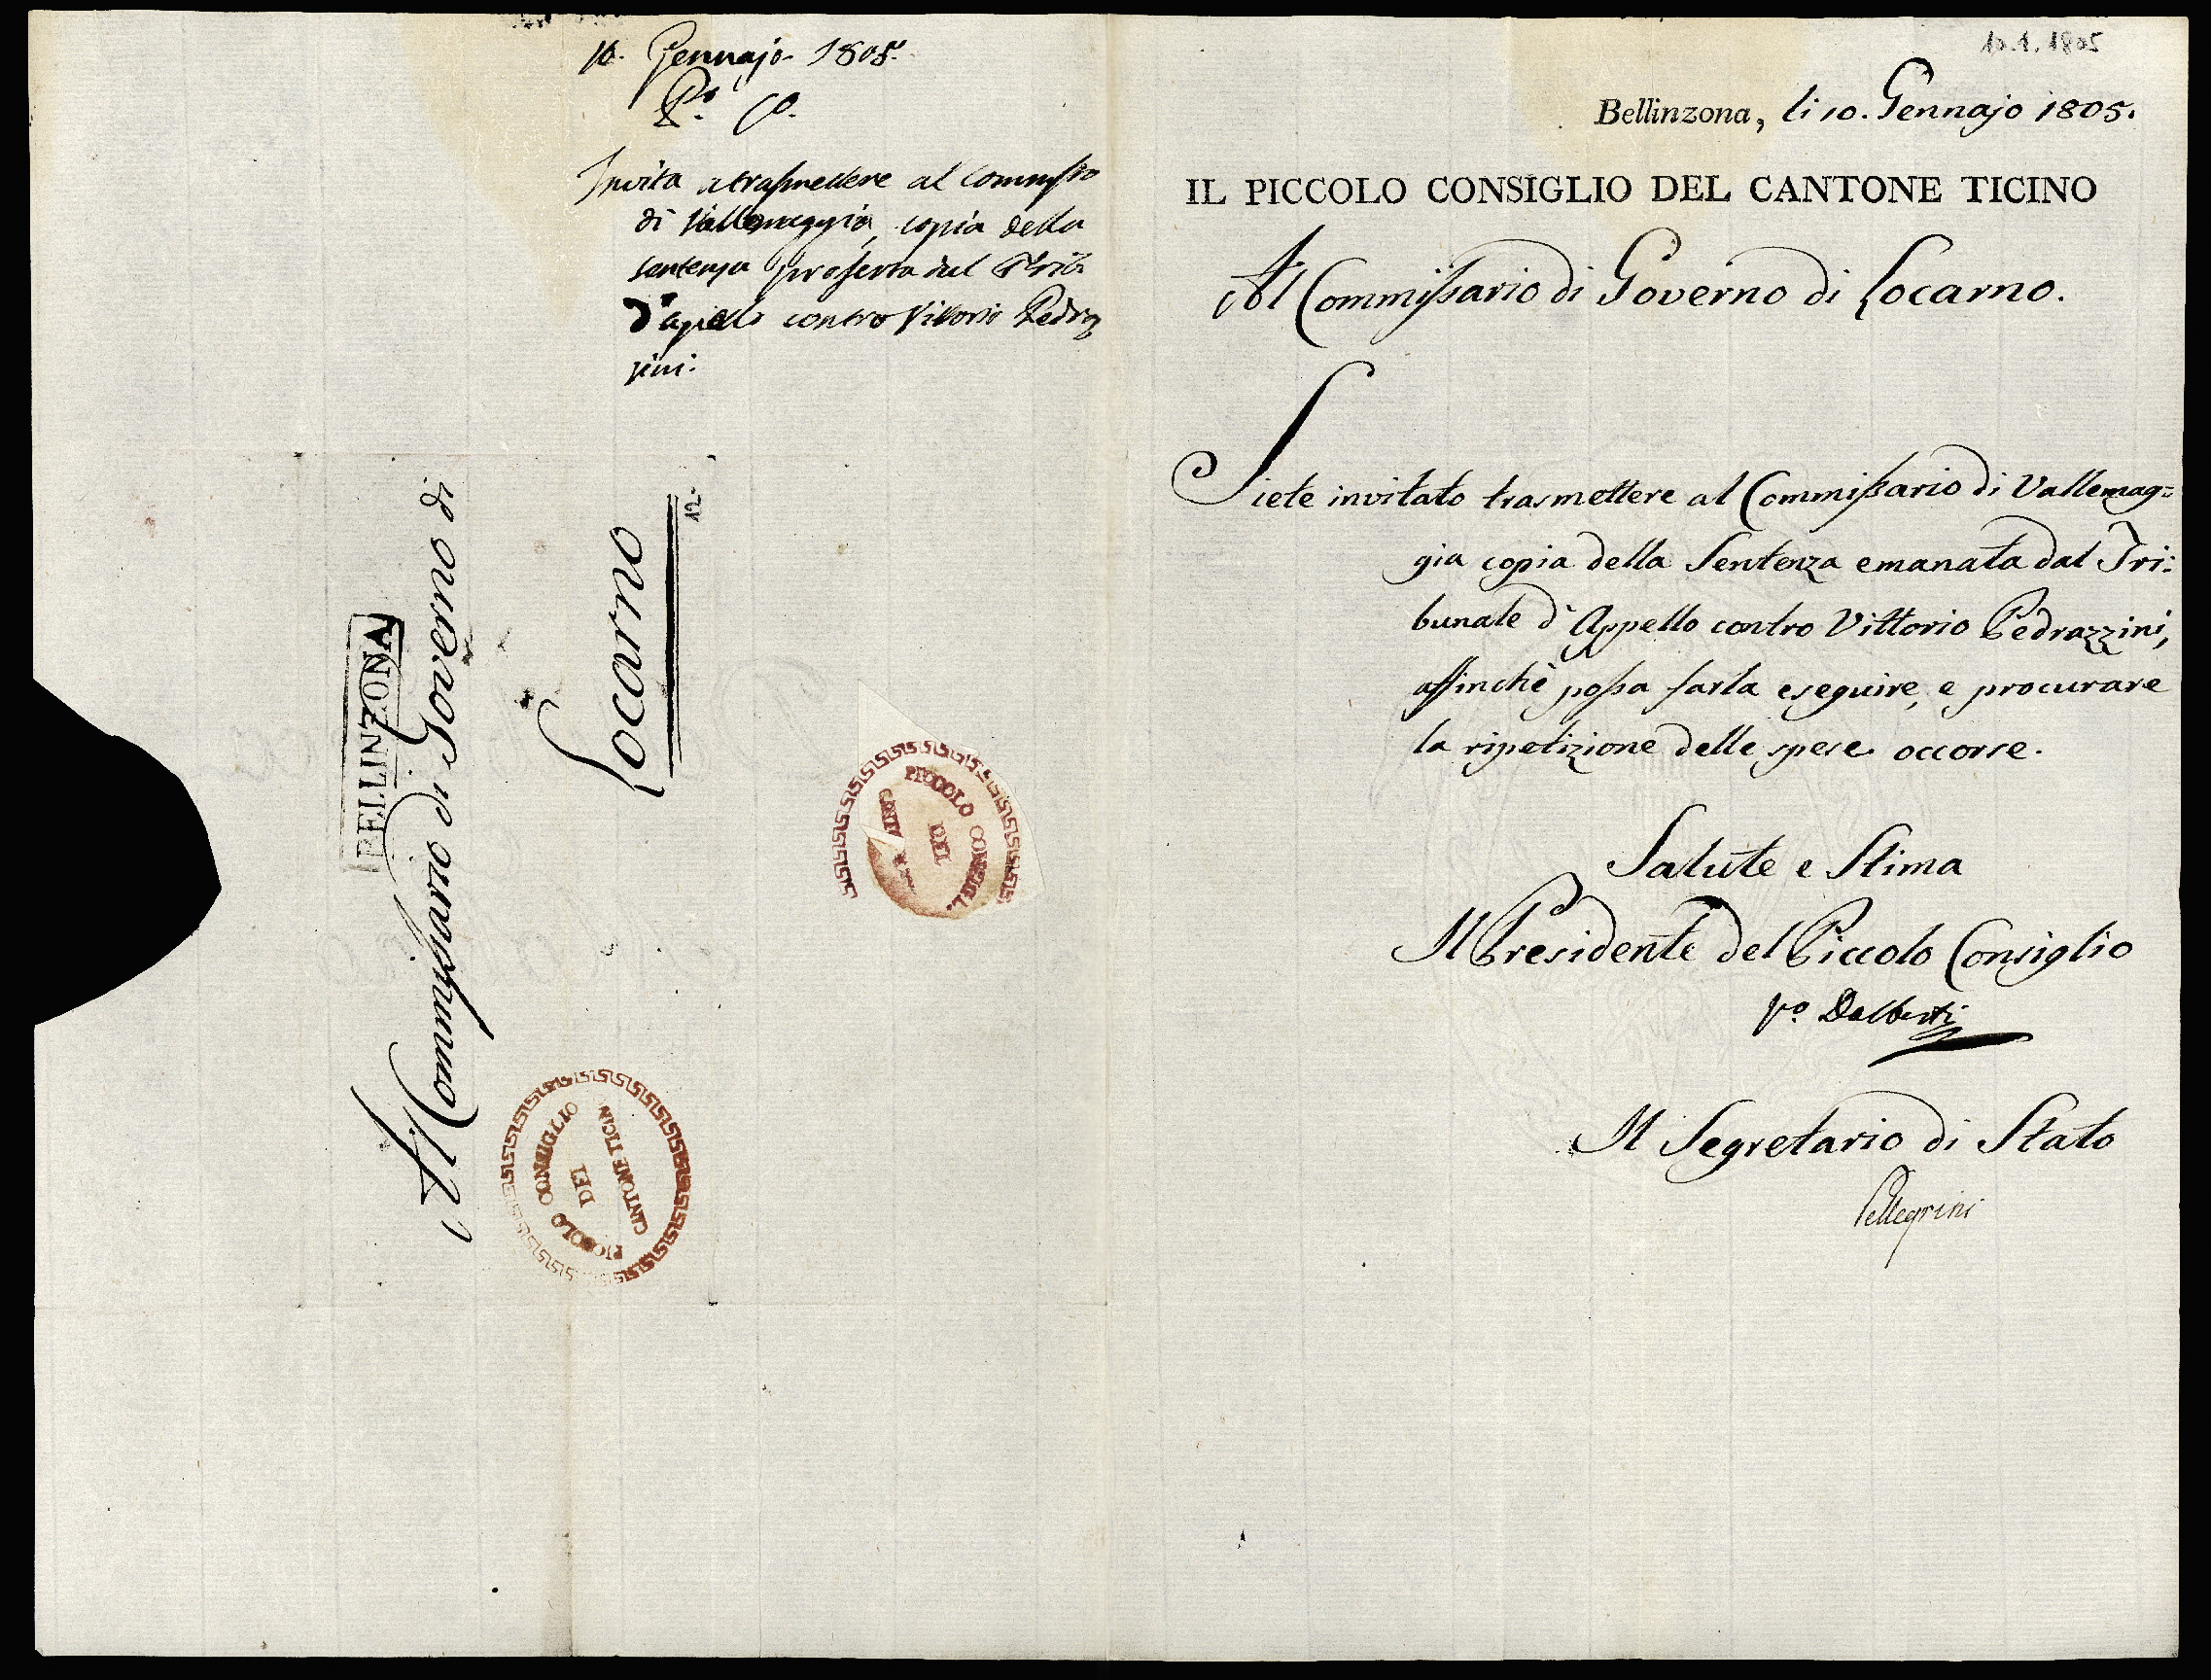 10. Gennajo 1805.
Pº. Cº.
Invita a trasmettere al Commissrio
di Vallemaggia, copia della
sentenza proferta dal Trib.
d'apello contro Vittorio Pedraz
zini.
BELLINZONA
Al Commissario di Governo di
Locarno
12.
PICCOLO CONSIGL.
DEL
PICCOLO CONSIGLIO
DEL
CANTONE TICIN
10.1.1805
Bellinzona, li 10. Gennajo 1805.
IL PICCOLO CONSIGLIO DEL CANTONE TICINO
Al Commissario di Governo di Locarno.
Siete invitato trasmettere al Commissario di Vallemag=
gia copia della Sentenza emanata dal Tri:
bunale d'Appello contro Vittorio Pedrazzini,
affinchè possa farla eseguire, e procurare
la ripetizione delle spese occorse.
Salute e Stima
Il Presidente del Piccolo Consiglio
Vº. Dalberti
Il Segretario di Stato
Pellegrini